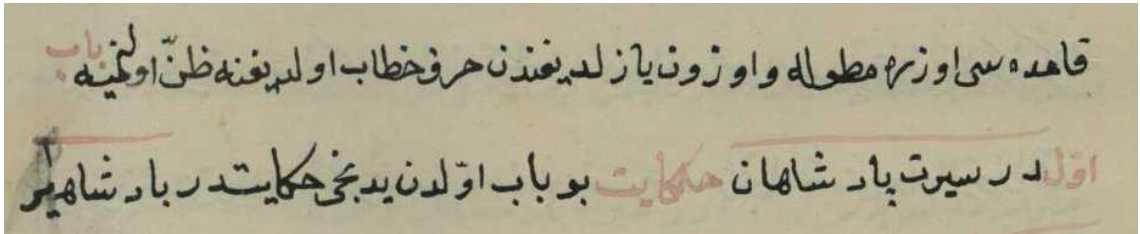 قاعده سی اوزره مطوله و اوزون یازلدیغندن حرف خطاب اولدیغنه ظنّ اولنمیه باب
اوّل در سیرت پادشاهان حکایت بو باب اوّلدن یدنجی حکایتدر پادشاهیرا